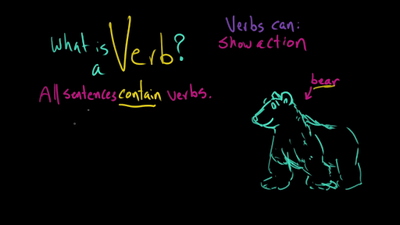 What is
a
Verb?
All sentences contain verbs.
Verbs can:
Show action
bear